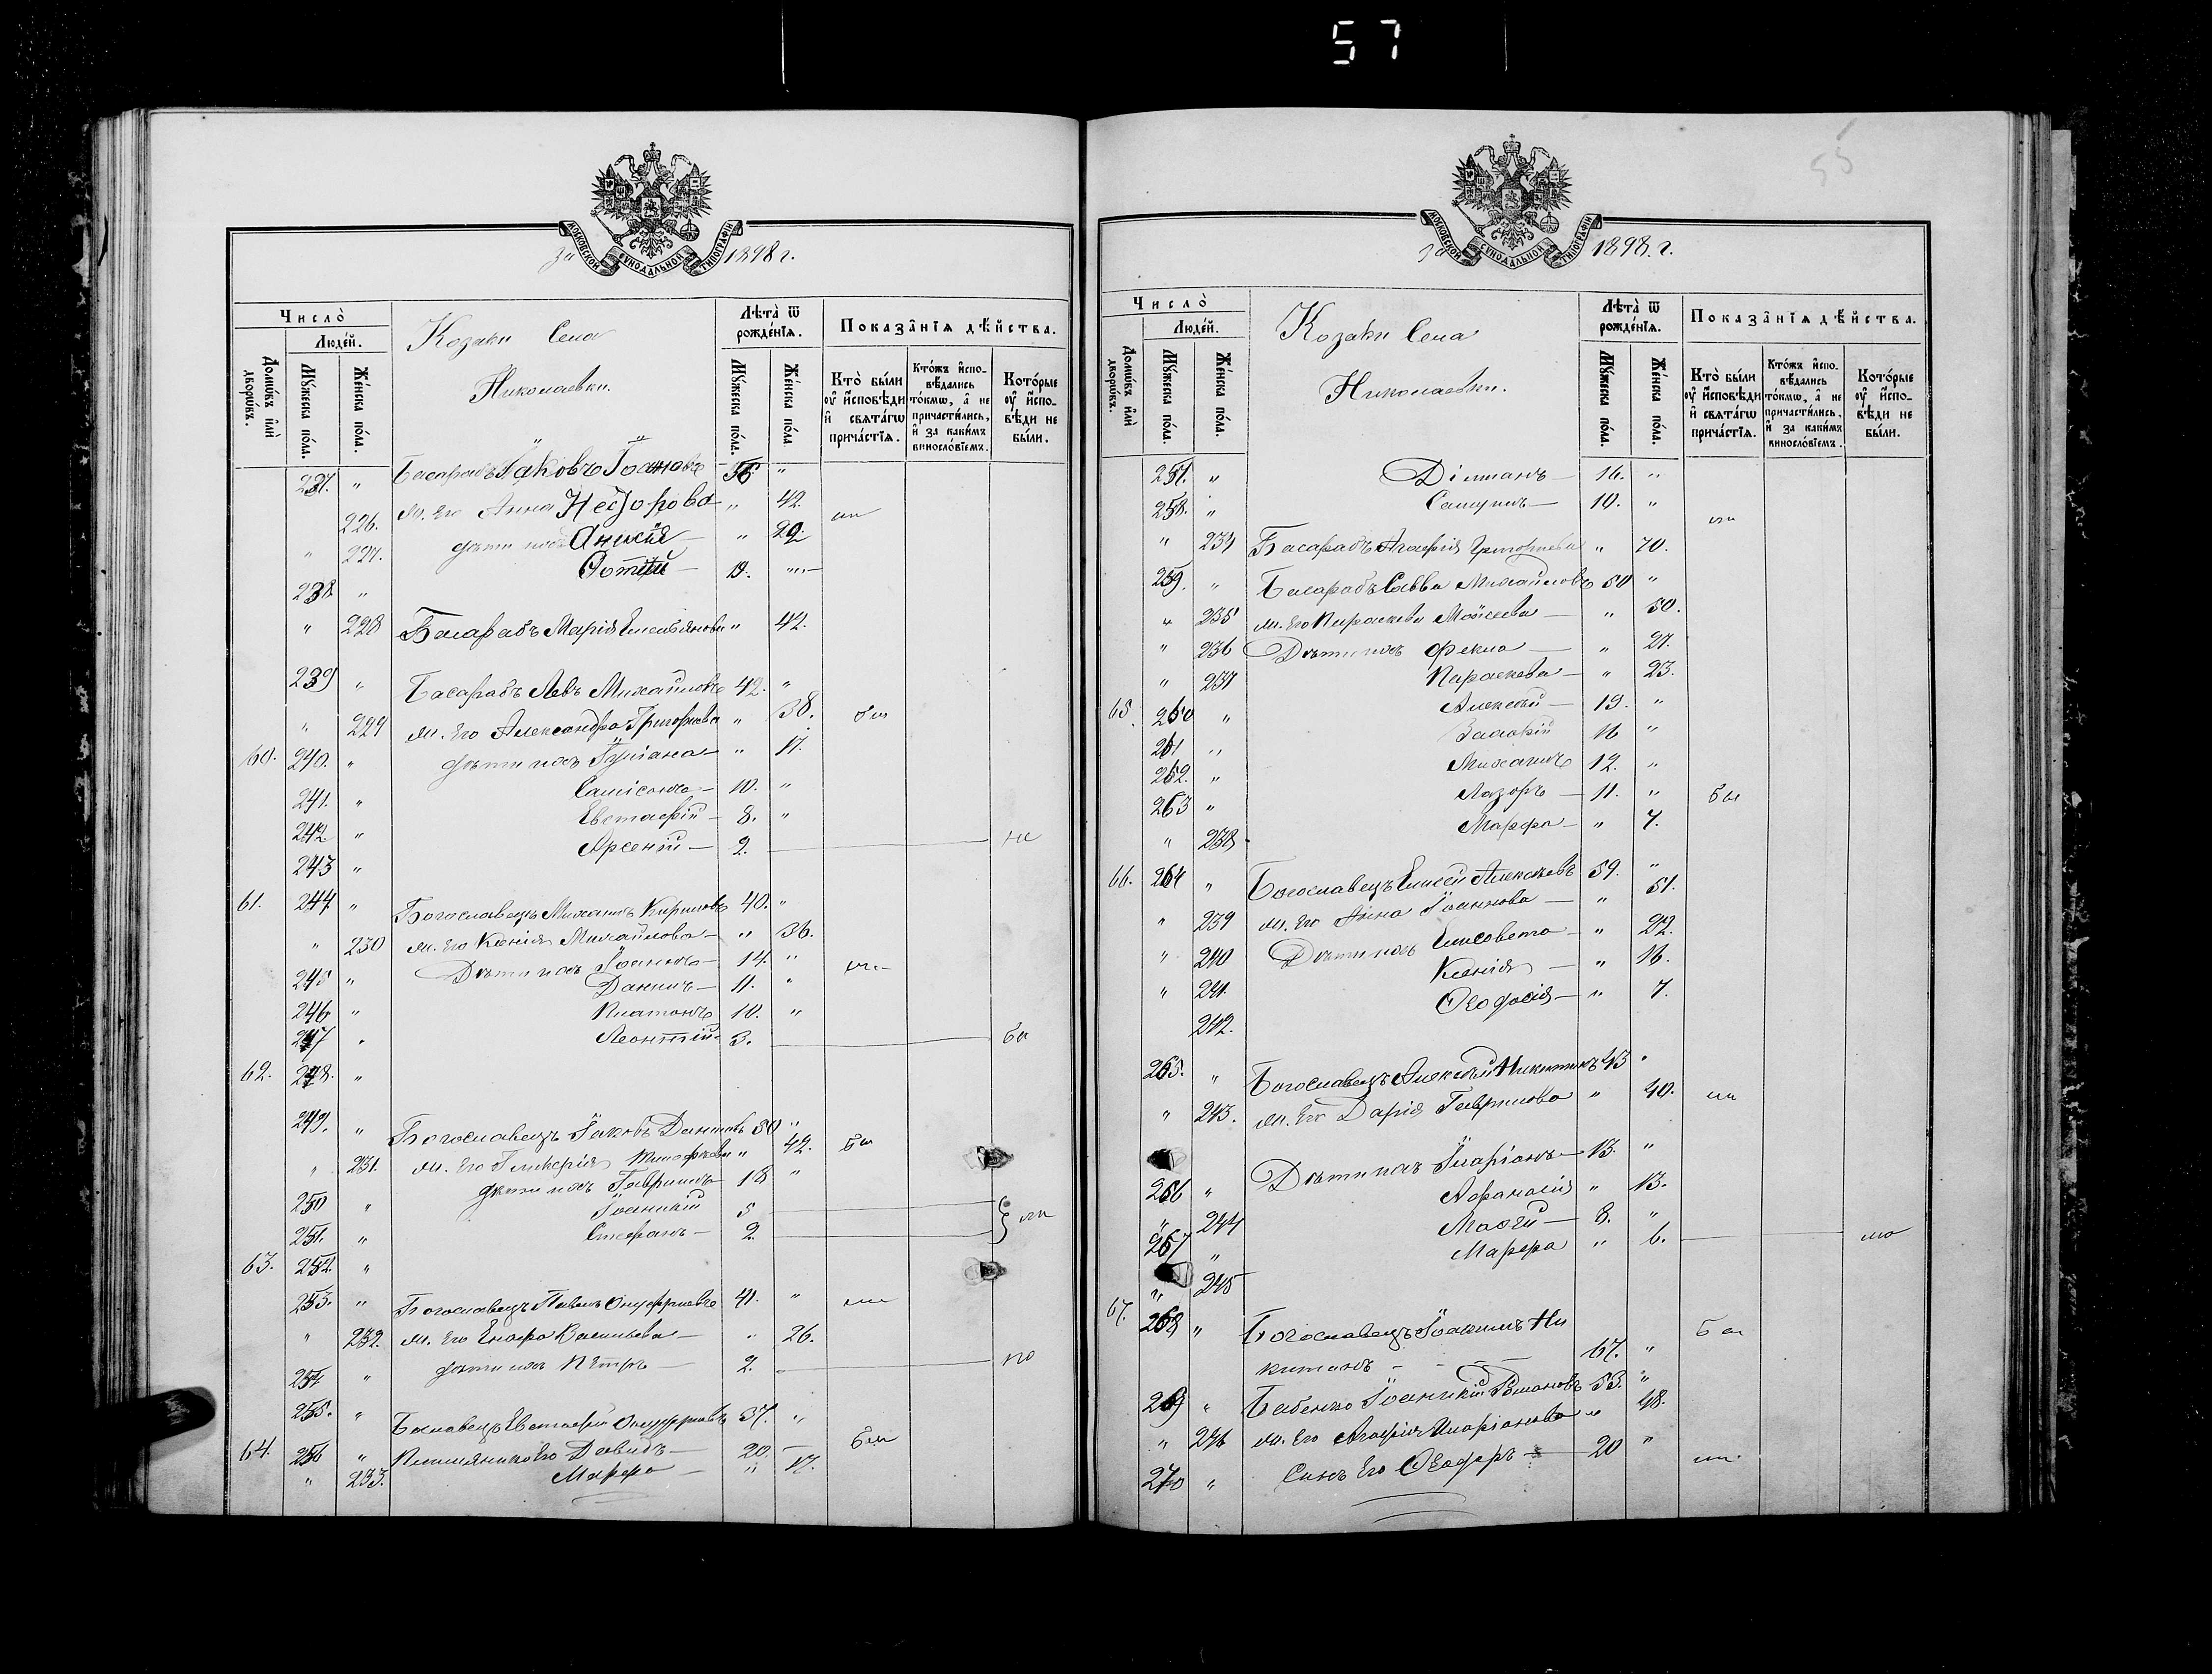 57
55
МОСКОВСКОЙ СѴНОДАЛЬНОЙ ТИПОГРАФІИ
за 1898 г.
Число̀
Люде́й.
Домѡ́въ и҆лѝ дворѡ́въ.
Мꙋ́жеска по́ла.
Же́нска по́ла.
Козаки Села
Николаевки.
Лѣта̀ ѿ рожде́нїѧ.
Мꙋ́жеска по́ла.
Же́нска по́ла.
Показа̂нїѧ дѣ́йства.
Кто̀ бы́ли ᲂу҆ и҆сповѣди и҆ свѧта́гѡ прича́стїѧ.
Кто́жъ и҆спо- вѣ́дались то́кмѡ, а҆ не причасти́лись, и҆ за каки́мъ винословіемъ.
Кото́рые ᲂу҆ и҆спо- вѣди не бы́ли.
237. " Басарабъ Іаковъ Іоановъ 56 "
226. ж. Его Анна Несторова " 42.
" 227. дѣти ихъ Анисія " 20.
238 " Фотій 19.
" 228 Басарабъ Марія Емельянова " 42.
239 " Басарабъ Левъ Михайловъ 42. "
" 229 ж. Его Александра Григорьева " 38. бы
60. 240. " дѣти ихъ Іуліана " 17.
241. " Сампсонъ 10. "
242 " Евстафій 8. "
243 " Арсеній 2. не
61. 244. " Богославецъ Михаилъ Кириловъ 40. "
" 230 ж. Его Ксенія Михайлова " 36.
245 " Дѣти ихъ Іоаннъ 14. "
Даніилъ 11. "
246 " Платонъ 10. "
247 " Леонтій 3. бы
62. 248. "
249. " Богославецъ Іаковъ 50 "
" 231. ж. Его Гликерія Тимофеева " 42. бы
дѣти ихъ Гавриилъ 18 "
250 " Іоаникій 5
251. " Стефанъ 2.
63. 252. "
253. " Богославецъ Павелъ Онуфріевъ 41. "
" 232. ж. Его Васильева " 26.
254 " дѣти ихъ Петръ 2.
255. " Евстафій Онуфріевъ 37. "
64. 256 " Племянники Его Давидъ 20. бы
" 233. Марфа " 17.
МОСКОВСКОЙ СѴНОДАЛЬНОЙ ТИПОГРАФІИ
за 1898. г.
Число̀
Люде́й.
Домѡ́въ и҆лѝ дворѡ́въ.
Мꙋ́жеска по́ла.
Же́нска по́ла.
Козаки Села
Николаевки.
Лѣта̀ ѿ рожде́нїѧ.
Мꙋ́жеска по́ла.
Же́нска по́ла.
Показа̂нїѧ дѣ́йства.
Кто̀ бы́ли ᲂу҆ и҆сповѣди и҆ свѧта́гѡ прича́стїѧ.
Кто́жъ и҆спо- вѣ́дались то́кмѡ, а҆ не причасти́лись, и҆ за каки́мъ винословіемъ.
Кото́рые ᲂу҆ и҆спо- вѣди не бы́ли.
257. " 16. "
258. " Самуилъ 10. "
" 234 Басарабъ Агафія Григорьева " 70.
259. " Басарабъ Савва Михайловъ 50 "
" 235 ж. Его Параскева Моисеева " 50.
" 236 Дѣти ихъ Фекла " 27.
" 237 Параскева " 23.
65. 260 " Алексѣй 19. "
261 " 16 "
262. " Михаилъ 12. "
263 " Лазоръ 11. " бы
" 238 Марфа " 7.
66. 264 " Богославецъ Елисей Алексѣевъ 59. "
" 239 ж. Его Анна Іоаннова " 51.
" 240 Дѣти ихъ Елисавета " 22.
" 241. Ксенія " 16.
242. Ѳеодосія " 7.
265. " Богославецъ Алексѣй Никитинъ 43 "
" 243. ж. Его Дарія Гаврилова " 40.
266 " Дѣти ихъ Иларіонъ 13. "
" 244 Афанасія " 13.
267 " 8. "
" 245 Марфа " 6.
67. 268 " Богославецъ Іоакимъ Ни
китинъ 67. " бы
269 " Бабенко Іоаникій Романовъ 53. "
" 246 ж. Его Агафія Иларіонова " 48.
270 " Сынъ Его Ѳеодоръ 20 "